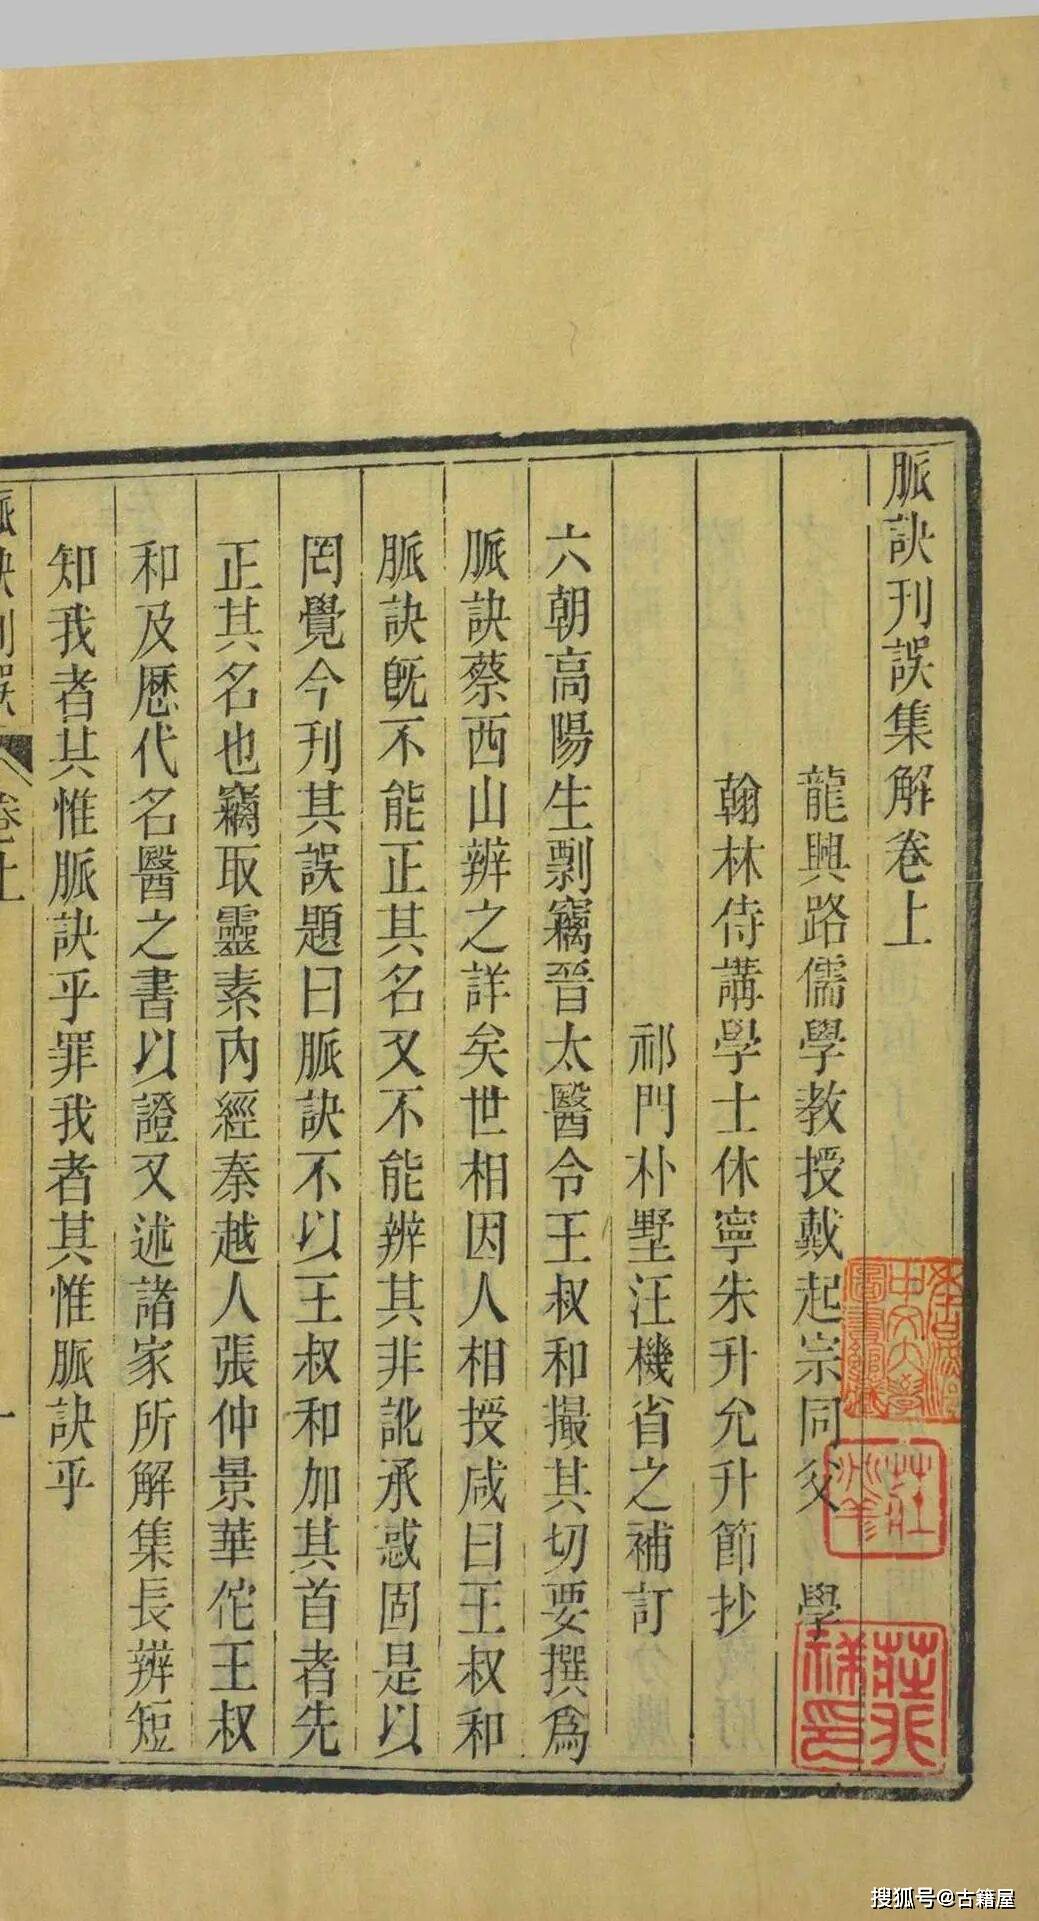 脈訣刊誤集解卷上
龍興路儒學教授戴起宗同父 學
翰林侍講學士休寧朱升允升節抄
祁門朴墅汪機省之補訂
六朝高陽生剽竊晉太醫令王叔和撮其切要撰爲
脈訣蔡西山辨之詳矣世相因人相授咸曰王叔和
脈訣旣不能正其名又不能辨其非訛承惑固是以
罔覺今刊其誤題曰脈訣不以王叔和加其首者先
正其名也竊取靈素內經秦越人張仲景華佗王叔
和及歷代名醫之書以證又述諸家所解集長辨短
知我者其惟脈訣乎罪我者其惟脈訣乎
脈訣刊誤 卷上 一
搜狐号@古籍屋